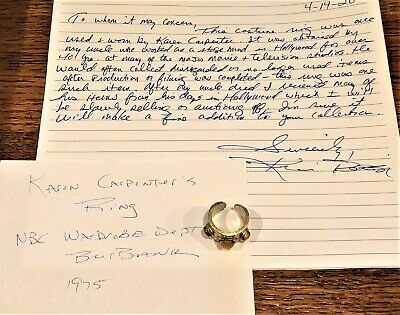 4-19-20
To whom it may concern,
This costume ring was once
used & worn by Karen Carpenter. It was obtained by
my uncle who worked as a stage hand in Hollywood for over
40 yrs. at many of the major movie & television studios. He
would often collect discarded or no longer used items
after production or filming was completed - this ring was one
such item. After my uncle died I received many of
his items from his days in Hollywood which I will
be slowly selling or auctioning off. I'm sure it
will make a fine addition to your collection.
Sincerely,
Karen Carpenter's
Ring
NBC Wardrobe Dept
Burbank
1975